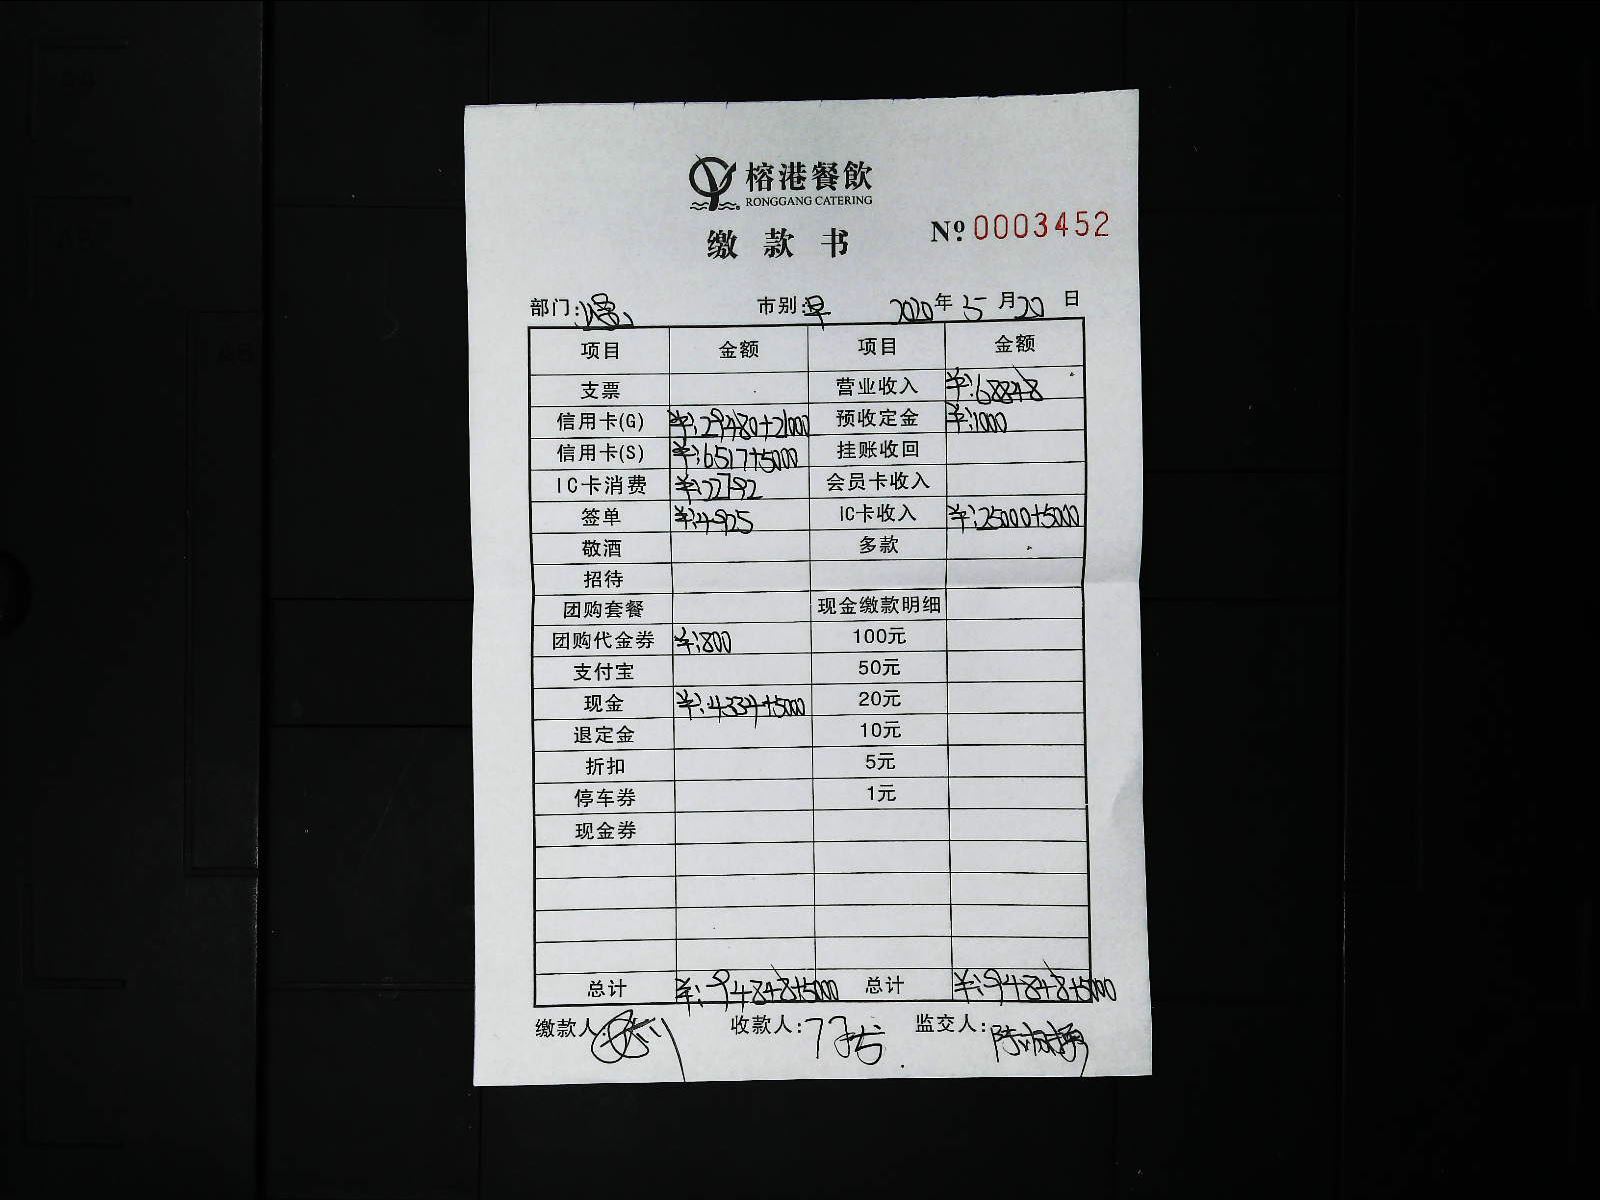 榕港餐飲
RONGGANG CATERING
缴 款 书 Nº 0003452
部门: 市别:早 2020年 5 月 20 日
项目 金额 项目 金额
支票 营业收入 ¥:68848
信用卡(G) ¥:29480+21000 预收定金 ¥:1000
信用卡(S) ¥:6517+5000 挂账收回
IC卡消费 ¥:22792 会员卡收入
签单 ¥:4925 IC卡收入 ¥:25000+5000
敬酒 多款
招待
团购套餐 现金缴款明细
团购代金券 ¥:800 100元
支付宝 50元
现金 ¥:4334+5000 20元
退定金 10元
折扣 5元
停车券 1元
现金券
总计 ¥:94848+5000 总计 ¥:94848+5000
缴款人: 收款人: 监交人: